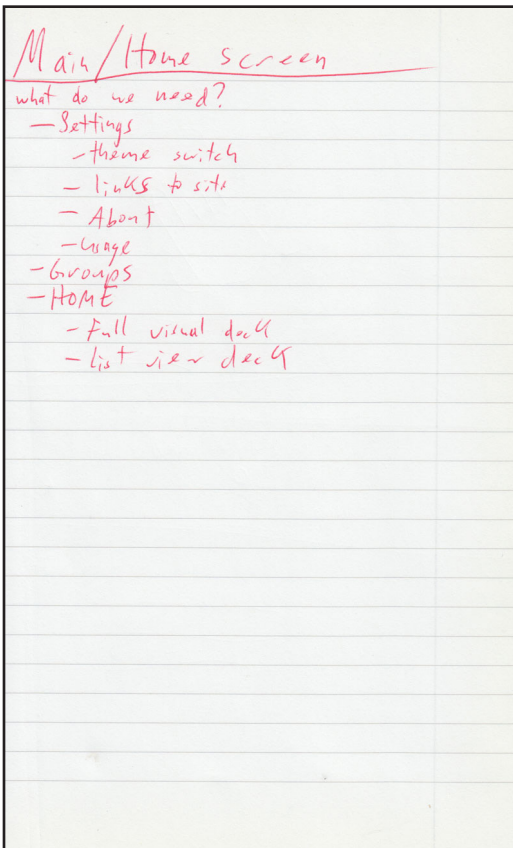 Main/Home screen
what do we need?
- Settings
- theme switch
- links to site
- About
- Usage
- Groups
- HOME
- Full visual deck
- List view deck